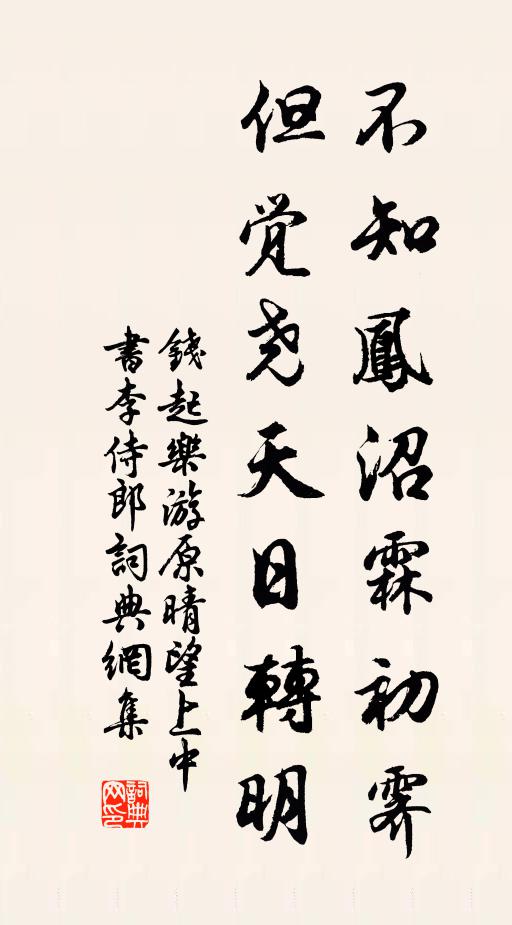 不知鳳沼霖初霽
但覚尭天日轉明
錢起樂游原晴望上中
書李侍郎詞典網集
詞典网印